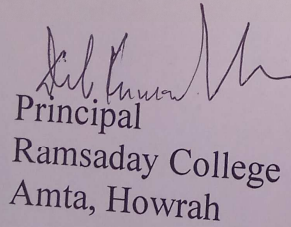 Principal
Ramsaday College
Amta, Howrah